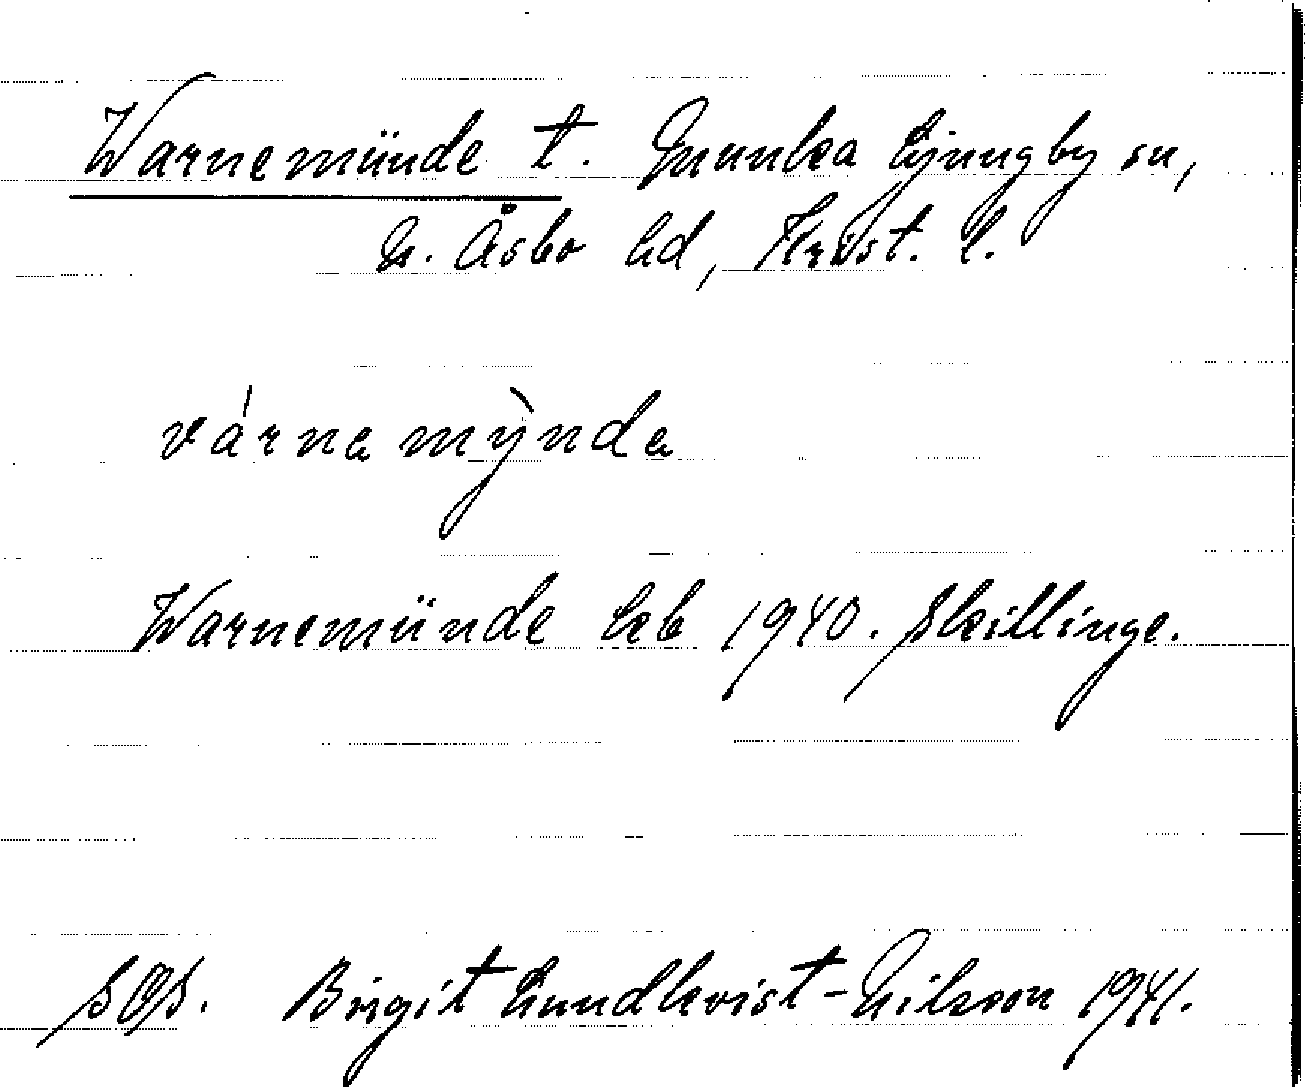 Warnemünde t. Munka Ljungby sn,
N. Åsbo hd, Krist. l.
várnamỳnda
Warnemünde kb 1940. Skillinge.
SOS. Birgit Lundkvist-Nilsson 1941.